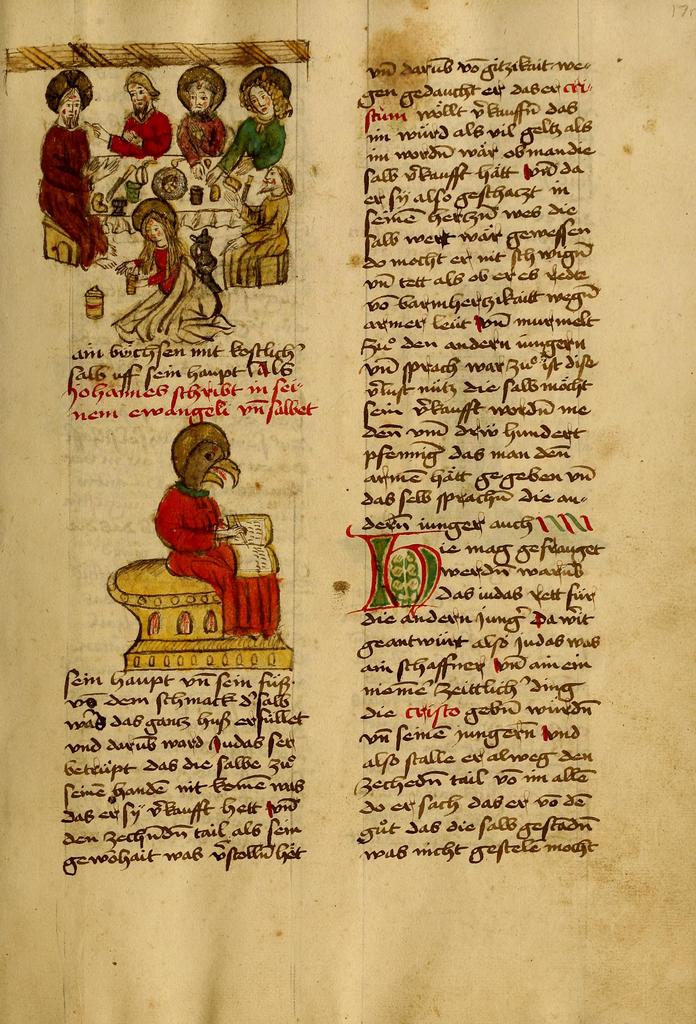 17r
ain büchsen mit kostlich
salb uff sein haupt Als
Johannes schribt in sei-
nem ewangeli vn̄ salbet
sein haupt vn̄ sein füß
vō dem schmack d' salb
was das gantz huß erfüllet
vnd darūb ward Judas ser
betrüpt das die salbe zuo
seinē handen nit komē was
das er sÿ v̄kaufft hett vn̄
den zechn̄dn̄ tail als sein
gewohait was v̄stolln̄ het
vn̄ darūb vō gitzikait we-
gen gedaucht er das er cri-
stum wöllt v̄kauffn̄ das
im würd als vil geltz als
im wordn̄ wär ob man die
salb v̄kaufft hätt vn̄ da
er sÿ also geschatzt in
seinē hertzn̄ wes die
salb wert wär gewessen
do mocht er nit schwign̄
vn̄ tett als ob er es redte
vō barmhertzikaitt wegn̄
armer leüt vn̄ murmelt
zuo den andern jungern
vn̄ sprach war zuo ist dise
v̄lust nütz die salb möcht
sein v̄kaufft wordn̄ me
den̄ vm̄ drÿ hundert
pfennig das man den̄
armē hätt gegeben vn̄
das selb sprachn̄ die an-
dern̄ iunger auch
Hie mag gefrauget
werdn̄ warūb
das iudas rett für
die andern jung' Da wirt
geantwürt also Judas was
ain schaffner vn̄ ain ein
nemē zeittlich' ding
die cristo gebn̄ wurdn̄
vn̄ seinē jungern̄ vnd
also stalle er alweg den
zechedn̄ tail vō im allē
do er sach das er vō dē
guͦt das die salb gestādn̄
was nicht gestelē mocht